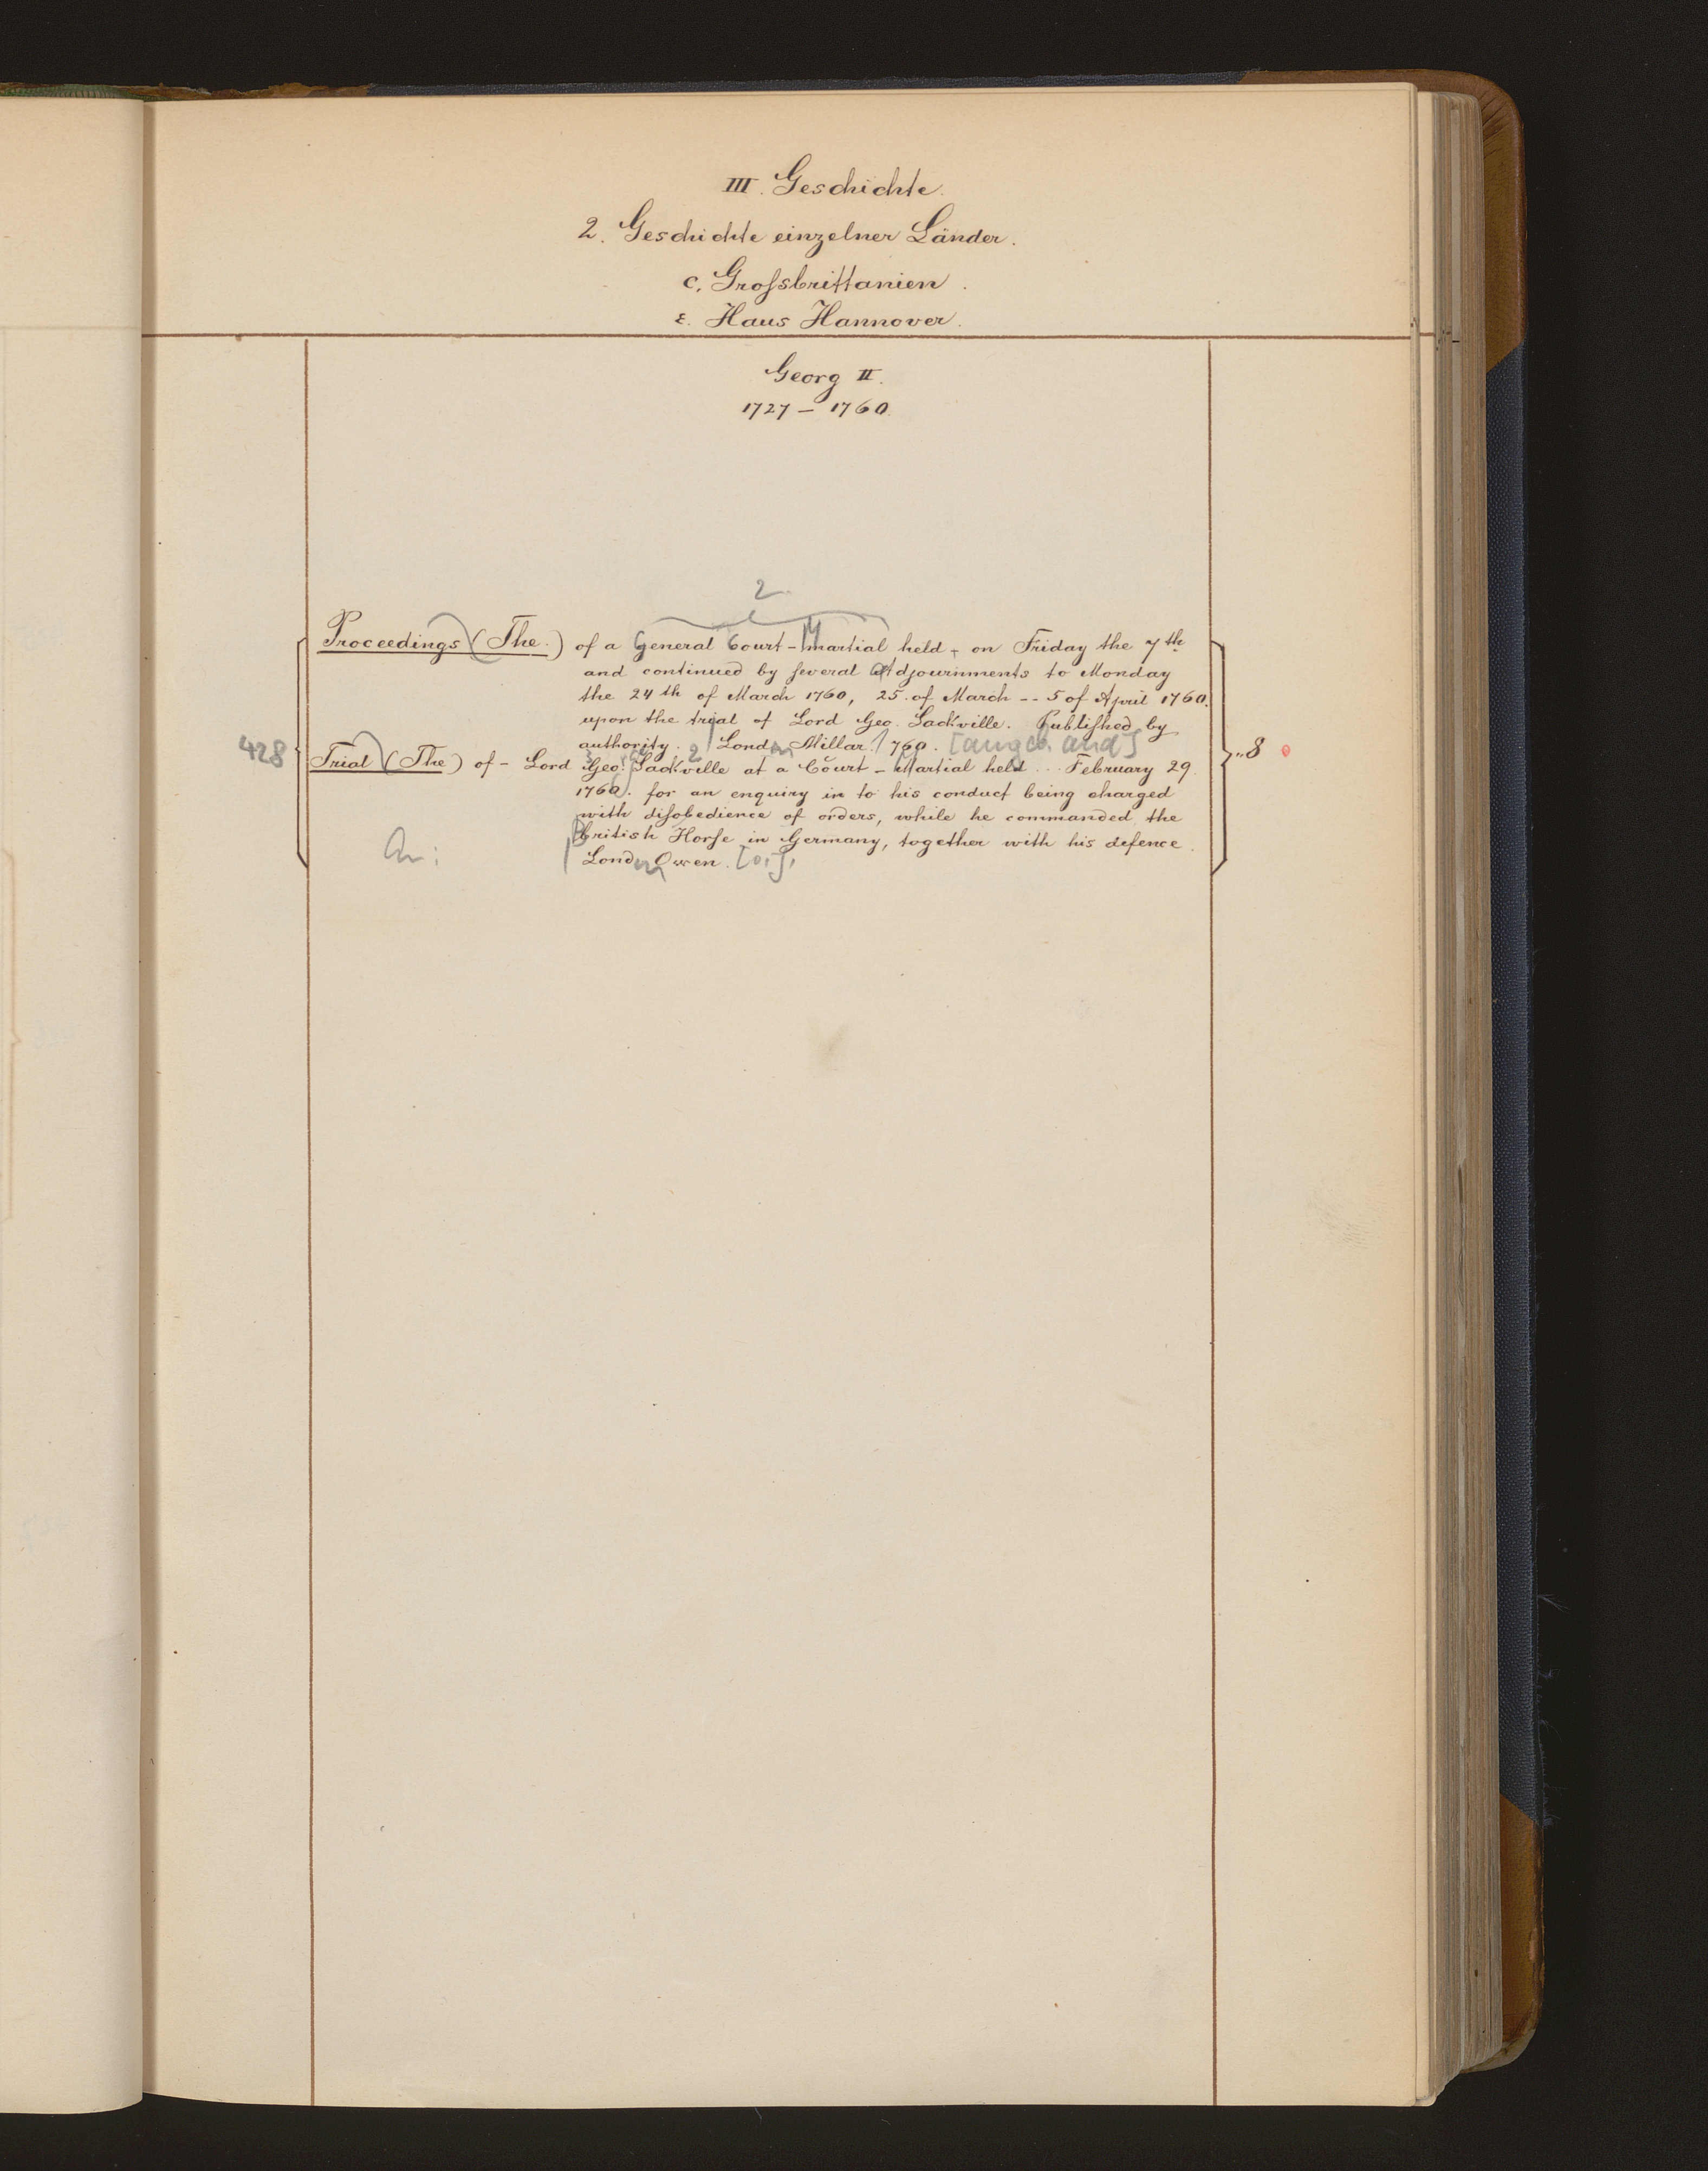 III. Geschichte.
2. Geschichte einzelner Länder.
c. Grosſsbrittanien.
ε. Haus Hannover.
Georg II.
1727 – 1760.
2
Proceedings (The.) of a General Court-Martial held on Friday the 7th
and continued by ſeveral Adjournments to Monday
the 24th of March 1760, 25. of March -- 5 of April 1760.
upon the trial of Lord Geo. Sackville. Publiſhed by
authority. London, Millar. 1760.
428
"8
Trial (The) of – Lord Geo: Sackville at a Court-Martial held ... February 29.
1760. for an enquiry in to his conduct being charged
with diſobedience of orders, while he commanded the
British Horſe in Germany, together with his defence.
London, Owen. [o. J.]